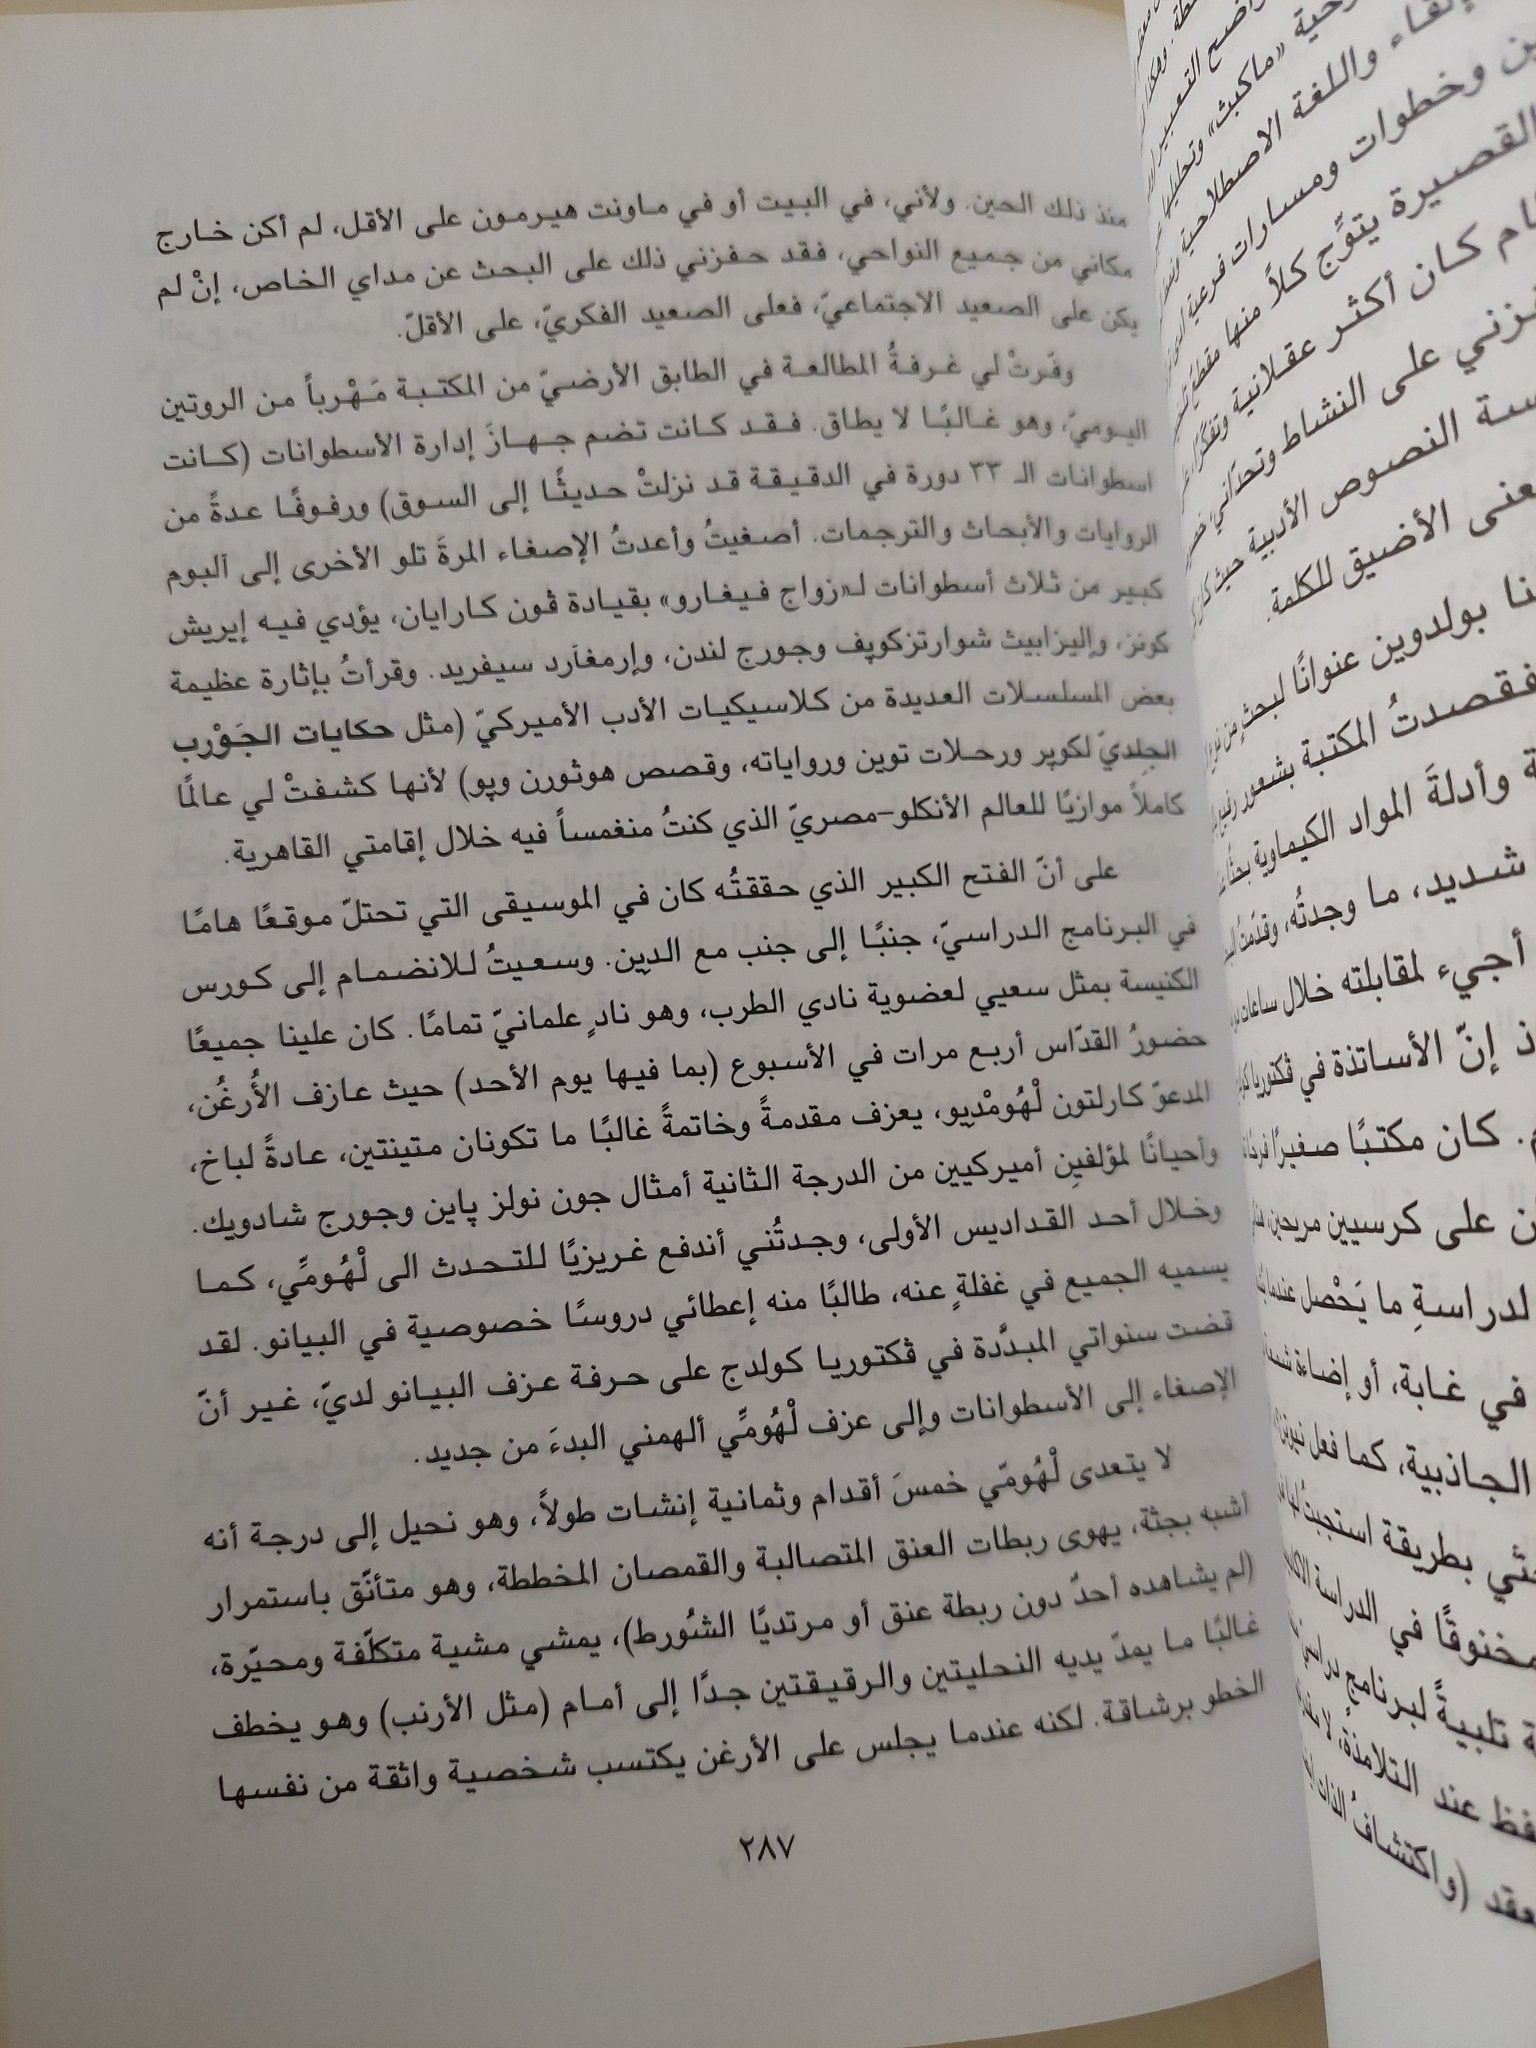 منذ ذلك الحين. ولأني، في البيت أو في ماونت هيرمون على الأقل، لم أكن خارج
مكاني من جميع النواحي، فقد حفزني ذلك على البحث عن مداي الخاص، إنْ لم
يكن على الصعيد الاجتماعيّ، فعلى الصعيد الفكريّ، على الأقلّ.
وفّرتْ لي غرفةُ المطالعة في الطابق الأرضيّ من المكتبة مَهْرباً من الروتين
اليوميّ، وهو غالبًا لا يطاق. فقد كانت تضم جهازَ إدارة الأسطوانات (كانت
اسطوانات الـ ٣٣ دورة في الدقيقة قد نزلتْ حديثًا إلى السوق) ورفوفًا عدةً من
الروايات والأبحاث والترجمات. أصغيتُ وأعدتُ الإصغاء المرةَ تلو الأخرى إلى آلبوم
كبير من ثلاث أسطوانات لـ«زواج فيغارو» بقيادة ڤون كارايان، يؤدي فيه إيريش
كونز، وإليزابيث شوارتزكوپف وجورج لندن، وإرمغآرد سيفريد. وقرأتُ بإثارة عظيمة
بعض المسلسلات العديدة من كلاسيكيات الأدب الأميركيّ (مثل حكايات الجَوْرب
الجِلديّ لكوپر ورحلات توين ورواياته، وقصص هوثورن وپو) لأنها كشفتْ لي عالمًا
كاملاً موازيًا للعالم الأنكلو-مصريّ الذي كنتُ منغمساً فيه خلال إقامتي القاهرية.
على أنّ الفتح الكبير الذي حققتُه كان في الموسيقى التي تحتلّ موقعًا هامًا
في البرنامج الدراسيّ، جنبًا إلى جنب مع الدين. وسعيتُ للانضمام إلى كورس
الكنيسة بمثل سعيي لعضوية نادي الطرب، وهو نادٍ علمانيّ تمامًا. كان علينا جميعًا
حضورُ القدّاس أربع مرات في الأسبوع (بما فيها يوم الأحد) حيث عازف الأُرغُن،
المدعوّ كارلتون لْهُومْديو، يعزف مقدمةً وخاتمةً غالبًا ما تكونان متينتين، عادةً لباخ،
وأحيانًا لمؤلفين أميركيين من الدرجة الثانية أمثال جون نولز پاين وجورج شادويك.
وخلال أحد القداديس الأولى، وجدتُني أندفع غريزيًا للتحدث الى لْهُومِّي، كما
يسميه الجميع في غفلةٍ عنه، طالبًا منه إعطائي دروسًا خصوصية في البيانو. لقد
قضت سنواتي المبدَّدة في ڤكتوريا كولدج على حرفة عزف البيانو لديّ، غير أنّ
الإصغاء إلى الأسطوانات وإلى عزف لْهُومِّي ألهمني البدءَ من جديد.
لا يتعدى لْهُومّي خمسَ أقدام وثمانية إنشات طولاً، وهو نحيل إلى درجة أنه
أشبه بجثة، يهوى ربطات العنق المتصالبة والقمصان المخططة، وهو متأنّق باستمرار
(لم يشاهده أحدٌ دون ربطة عنق أو مرتديًا الشُورط)، يمشي مشية متكلّفة ومحيّرة،
غالبًا ما يمدّ يديه النحليتين والرقيقتين جدًا إلى أمام (مثل الأرنب) وهو يخطف
الخطو برشاقة. لكنه عندما يجلس على الأرغن يكتسب شخصية واثقة من نفسها
٢٨٧
واللغة الاصطلاحية
وخطوات ومسارات فرعية
القصيرة يتوِّج كلاً منها
كان أكثر عقلانية
على النشاط
النصوص الأدبية
الأضيق للكلمة.
بولدوين عنوانًا لبحثٍ من
فقصدتُ المكتبة بشعور
وأدلةَ المواد الكيماوية بحثًا
شديد، ما وجدتُه،
أجيء لمقابلته خلال ساعات
إنّ الأساتذة في ڤكتوريا
كان مكتبًا صغيرًا
على كرسيين مريحين،
لدراسةِ ما يَحْصل عندما
في غابة، أو إضاءة
الجاذبية، كما فعل
بطريقة استجبتُ
مخنوقًا في الدراسة
تلبيةً لبرنامجٍ
عند التلامذة، لا
(واكتشافُ الذات